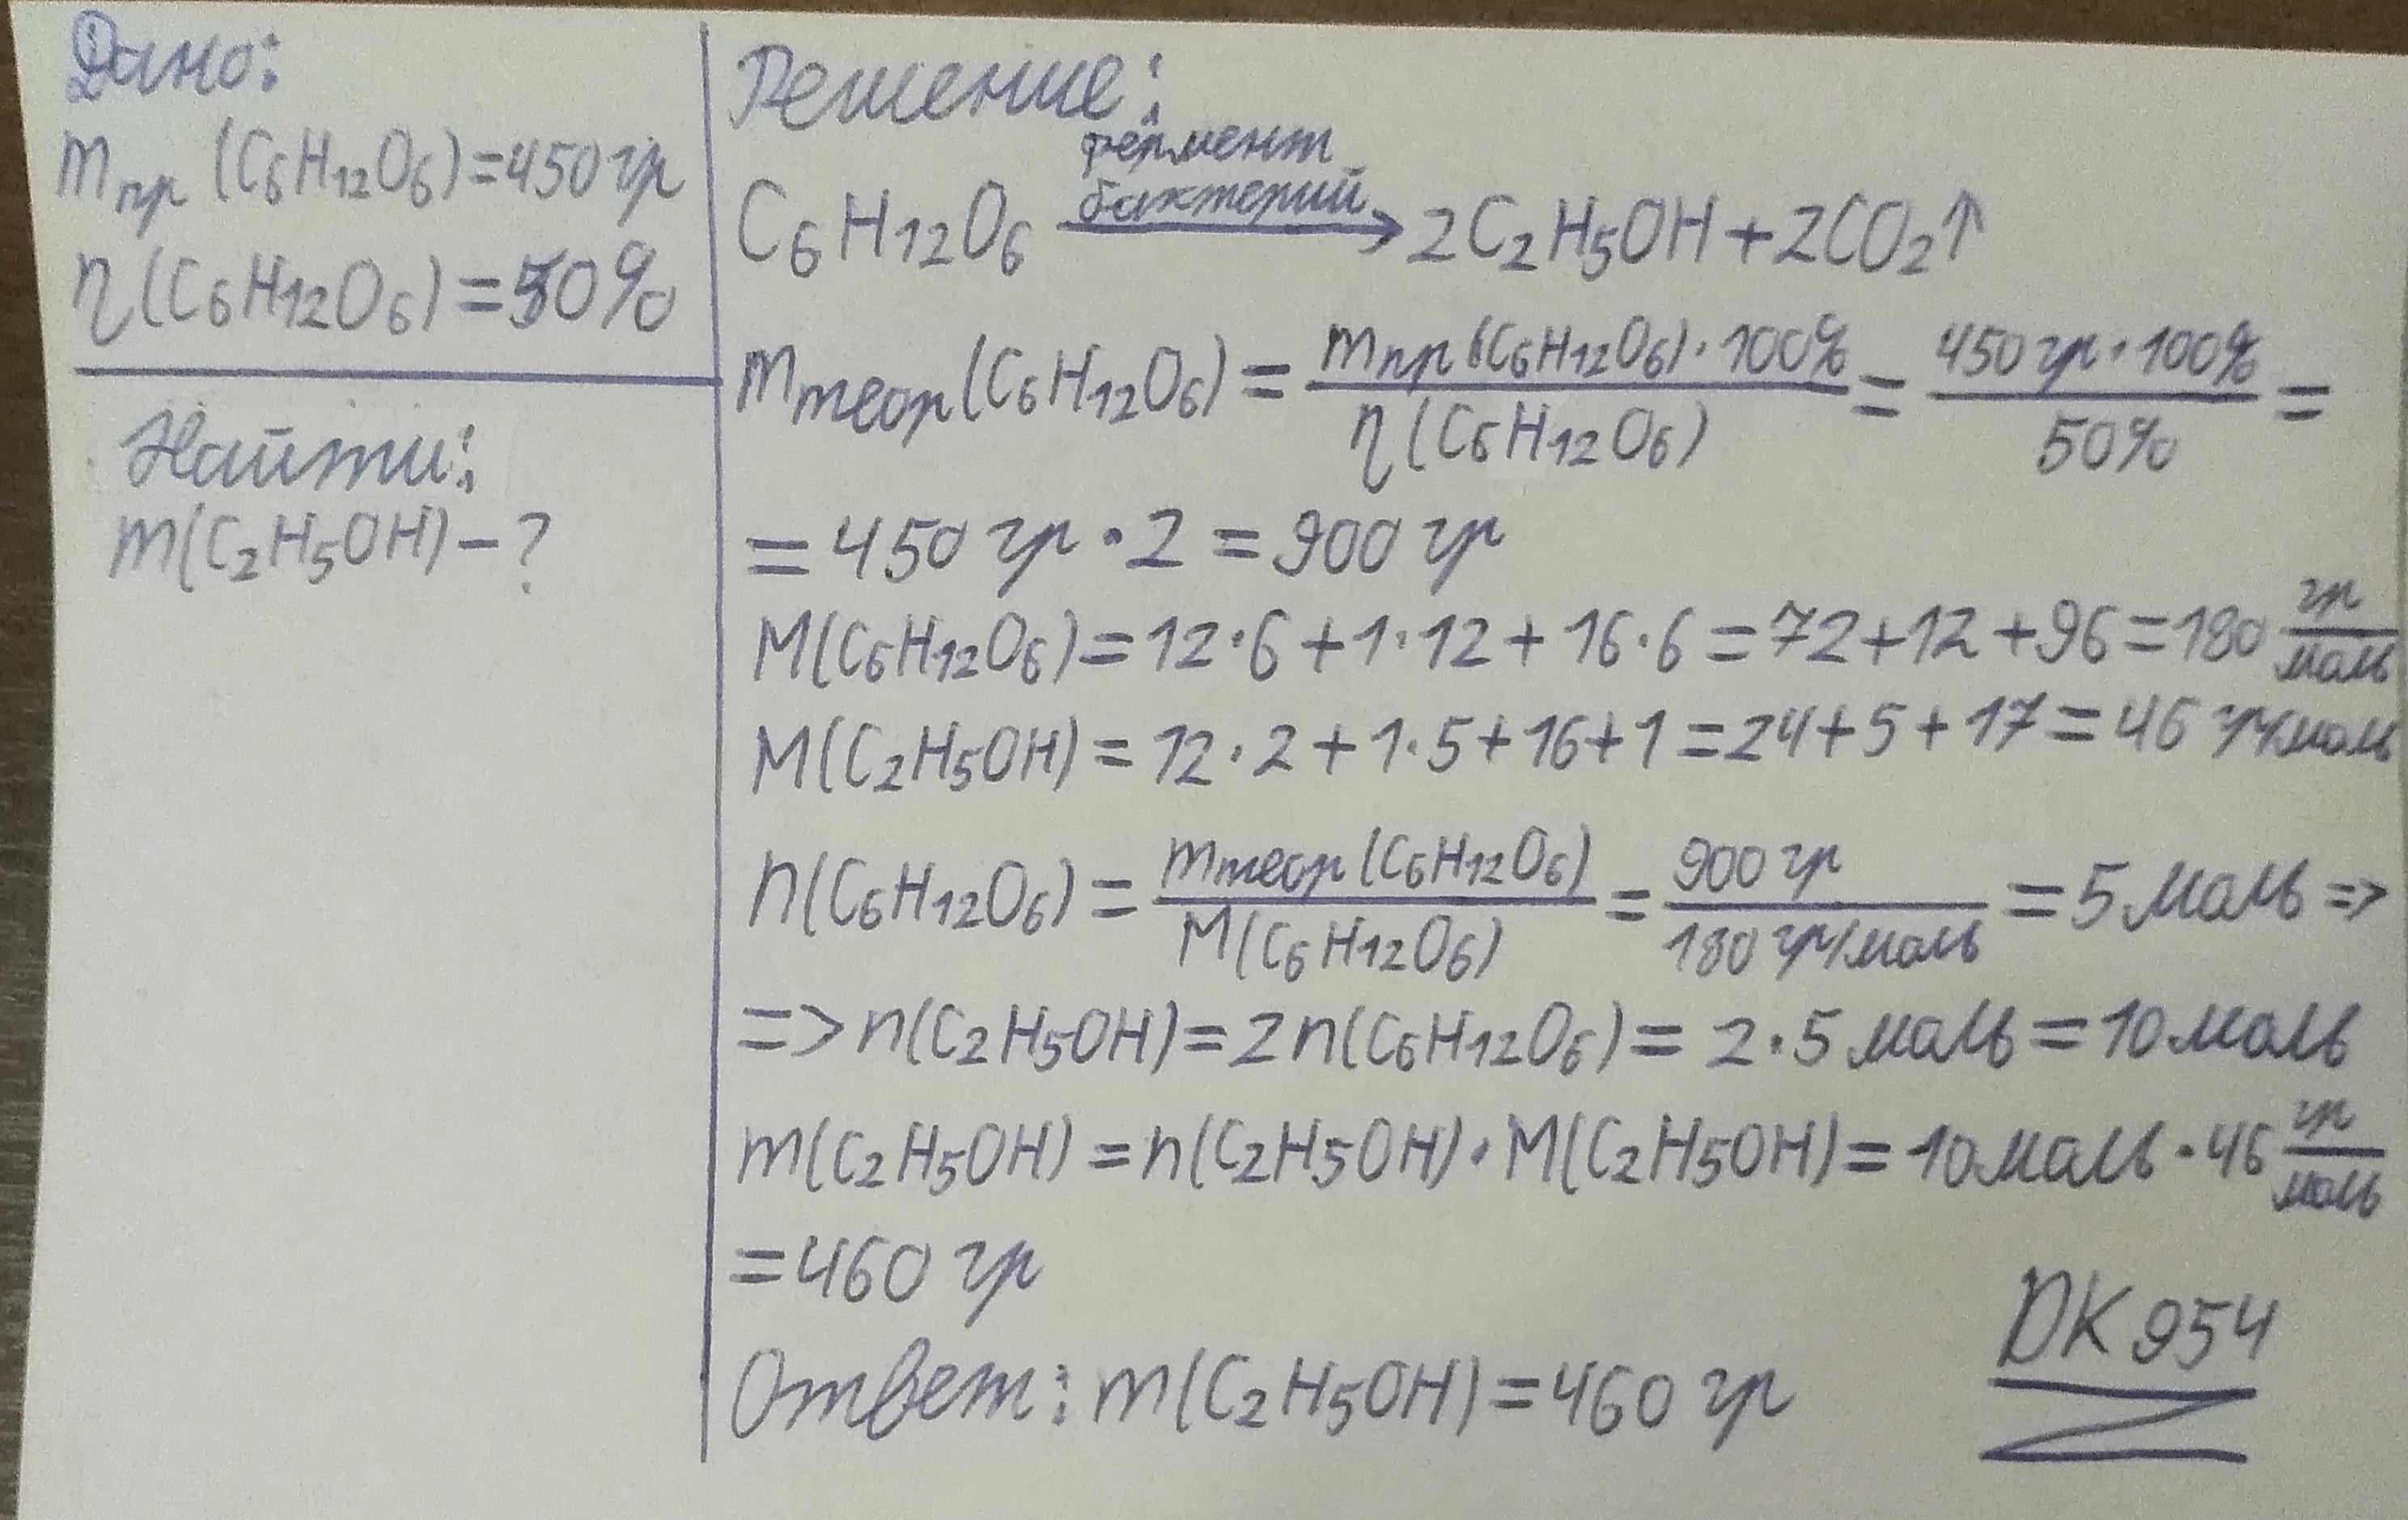 Дано:
mпр (C₆H₁₂O₆)=450 гр
η(C₆H₁₂O₆)=50%
Найти:
m(C₂H₅OH)–?
Решение:
фермент
бактерий
C₆H₁₂O₆ → 2C₂H₅OH+2CO₂↑
mтеор(C₆H₁₂O₆) = mпр(C₆H₁₂O₆)·100% / η(C₆H₁₂O₆) = 450 гр·100% / 50% =
= 450 гр · 2 = 900 гр
M(C₆H₁₂O₆)=12·6+1·12+16·6=72+12+96=180 гр/моль
M(C₂H₅OH)=12·2+1·5+16+1=24+5+17=46 гр/моль
n(C₆H₁₂O₆)= mтеор(C₆H₁₂O₆) / M(C₆H₁₂O₆) = 900 гр / 180 гр/моль = 5 моль =>
=> n(C₂H₅OH)=2n(C₆H₁₂O₆)= 2·5 моль=10 моль
m(C₂H₅OH)=n(C₂H₅OH)·M(C₂H₅OH)=10 моль·46 гр/моль
=460 гр
Ответ: m(C₂H₅OH)=460 гр
DK954